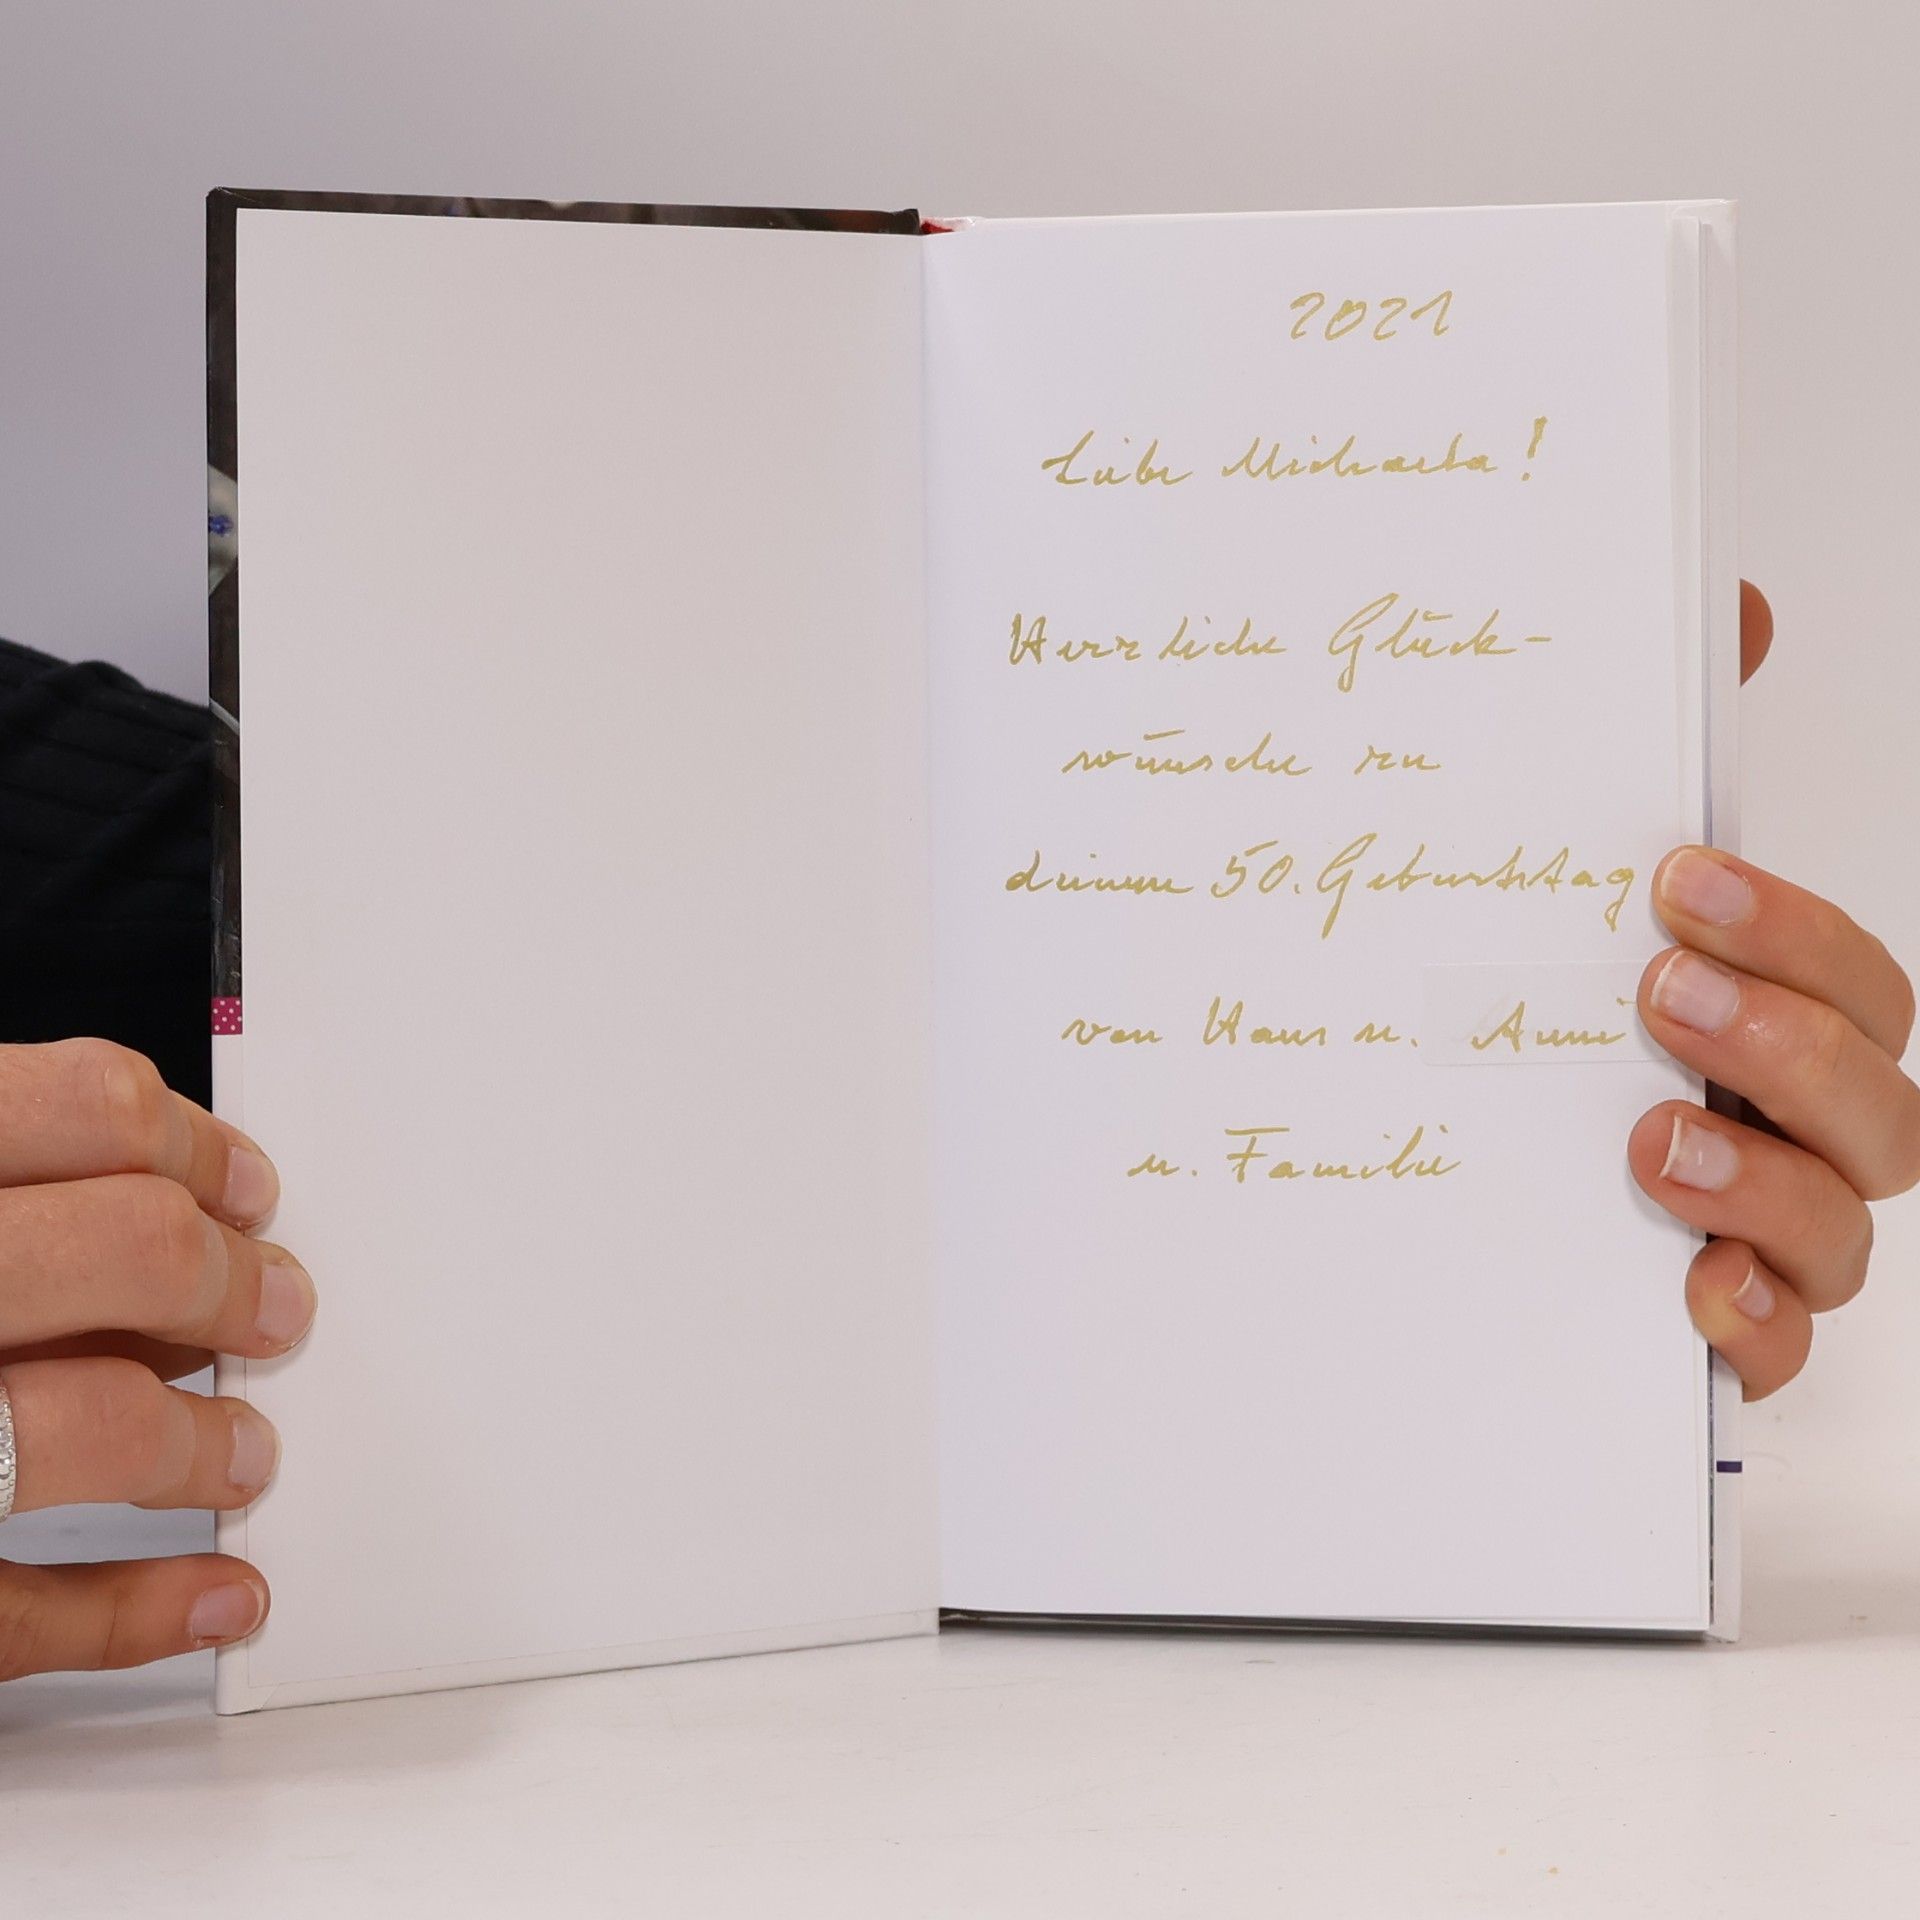 2021
Liebe Michaela!
Herzliche Glück-
wünsche zu
deinem 50. Geburtstag
von Hans u. Anni
u. Familie